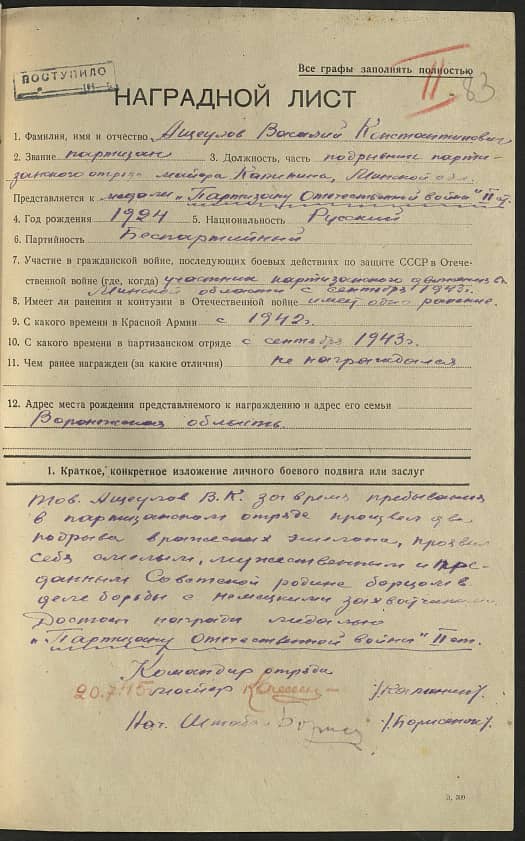 Все графы заполнять полностью
II
83
ПОСТУПИЛО
НАГРАДНОЙ ЛИСТ
1. Фамилия, имя и отчество Ащеулов Василий Константинович
2. Звание партизан 3. Должность, часть подрывник парти-
занского отряда майора Калинина, Минской обл.
Представляется к медали „Партизану Отечественной войны" II ст.
4. Год рождения 1924 5. Национальность Русский
6. Партийность Беспартийный
7. Участие в гражданской войне, последующих боевых действиях по защите СССР в Отече-
ственной войне (где, когда) участник партизанского движения в
Минской области с сентября 1943 г.
8. Имеет ли ранения и контузии в Отечественной войне имеет одно ранение.
9. С какого времени в Красной Армии с 1942 г.
10. С какого времени в партизанском отряде с сентября 1943 г.
11. Чем ранее награжден (за какие отличия) не награждался
12. Адрес места рождения представляемого к награждению и адрес его семьи
Воронежская область.
1. Краткое, конкретное изложение личного боевого подвига или заслуг
Тов. Ащеулов В.К. за время пребывания
в партизанском отряде произвел два
подрыва вражеских эшелона, проявил
себя смелым, мужественным и пре-
данным Советской родине борцом в
деле борьбы с немецкими захватчиками.
Достоин награды медалью
„Партизану Отечественной войны" II ст.
Командир отряда
майор /Калинин/.
Нач. Штаба